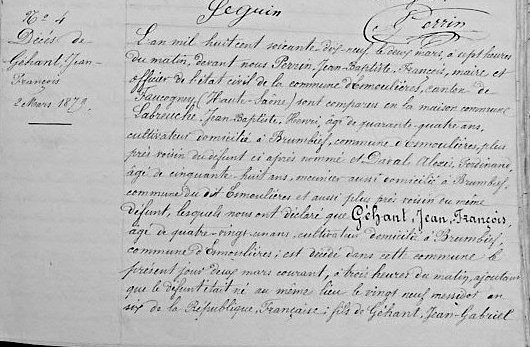 Seguin
Perrin
No 4
Décès de
Géhant, Jean-
François
2 Mars 1879.
L'an mil huit cent soixante dix neuf le deux mars, à sept heures
du matin, devant nous Perrin, Jean-Baptiste, François, maire et
officier de l'état civil de la commune d'Esmoulières, canton de
Faucogney (Haute-Saône) sont comparus en la maison commune
Labreuche, Jean-Baptiste, Henri, âgé de quarante-quatre ans,
cultivateur domicilié à Brumbief, commune d'Esmoulières, plus
près voisin du défunt ci après nommé et Daval Alexis, Ferdinand,
âgé de cinquante-huit ans, meunier aussi domicilié à Brumbief,
commune du dit Esmoulières et aussi plus près voisin du même
défunt, lesquels nous ont déclaré que Géhant, Jean, François,
âgé de quatre-vingt-un ans, cultivateur domicilié à Brumbief,
commune d'Esmoulières; est décédé dans cette commune le
présent jour deux mars courant, à trois heures du matin, ajoutant
que le défunt était né au même lieu le vingt neuf messidor an
six de la République Française; fils de Géhant, Jean-Gabriel